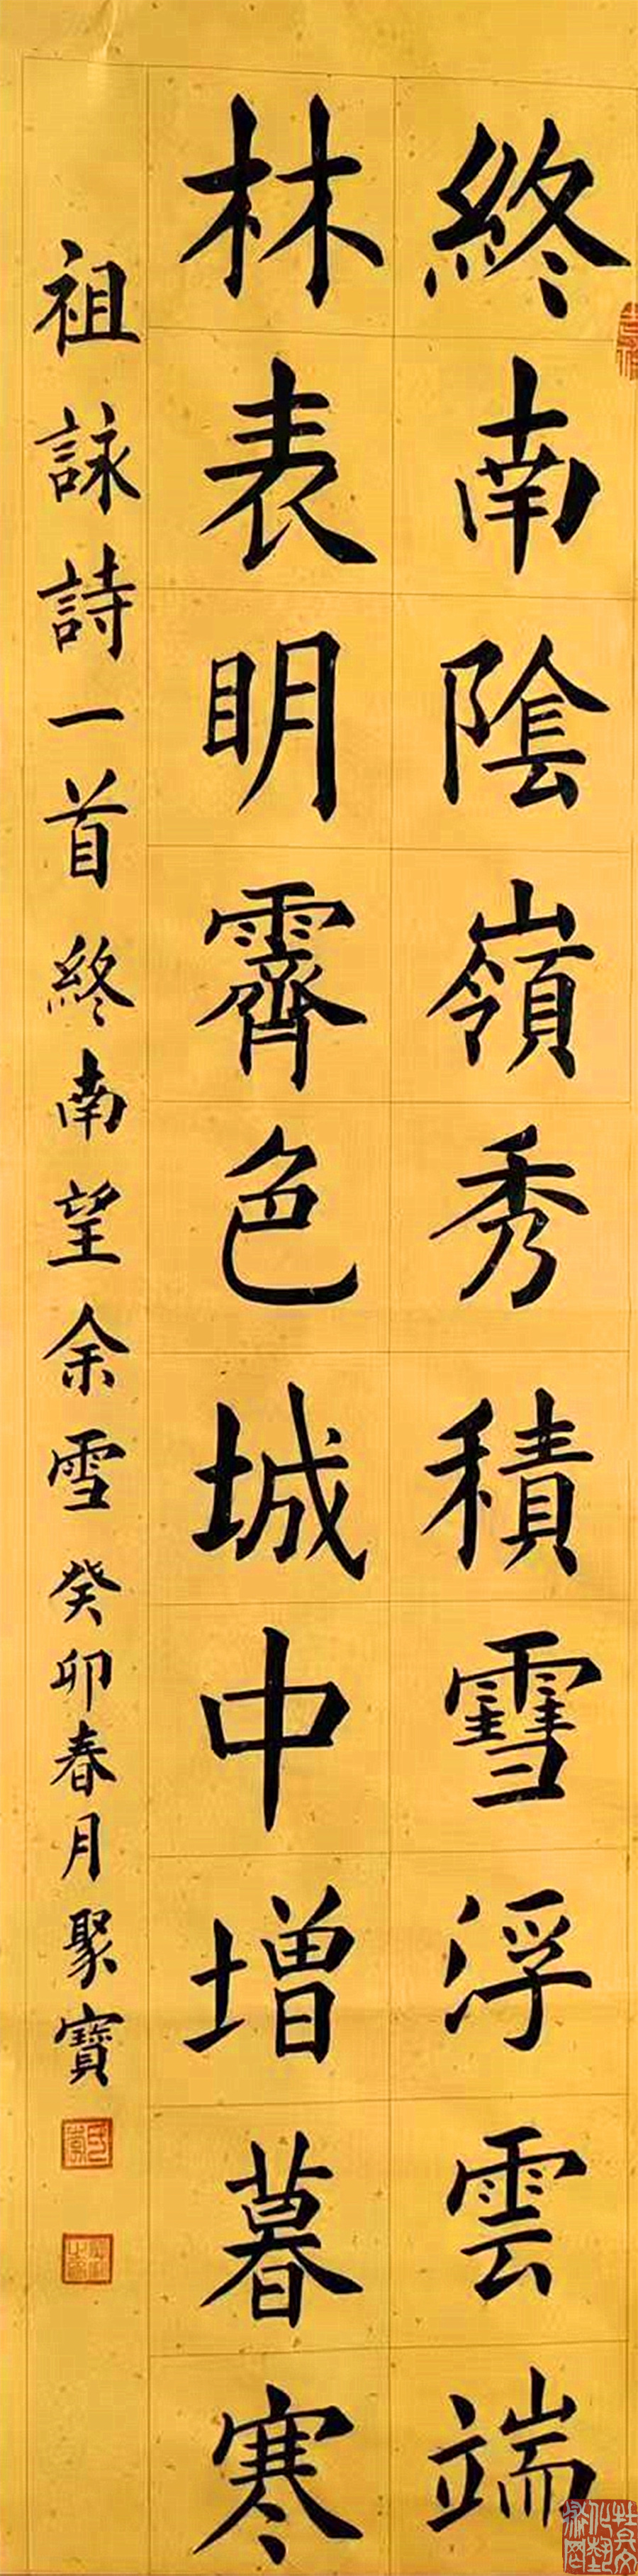 終南陰嶺秀積雪浮雲端
林表明霽色城中增暮寒
祖詠詩一首終南望余雪癸卯春月聚寶